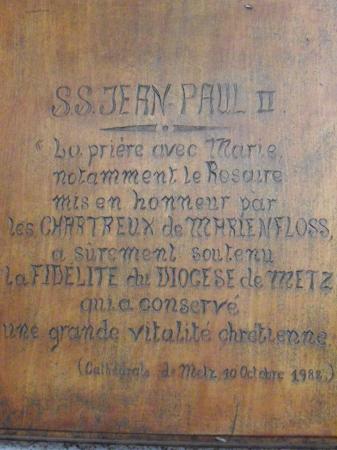 S.S. JEAN-PAUL II.
"La prière avec Marie,
notamment le Rosaire
mis en honneur par
les CHARTREUX de MARIENFLOSS,
a sûrement soutenu
la FIDELITE du DIOCESE de METZ
qui a conservé
une grande vitalité chrétienne.
(Cathédrale de Metz 10 Octobre 1988)